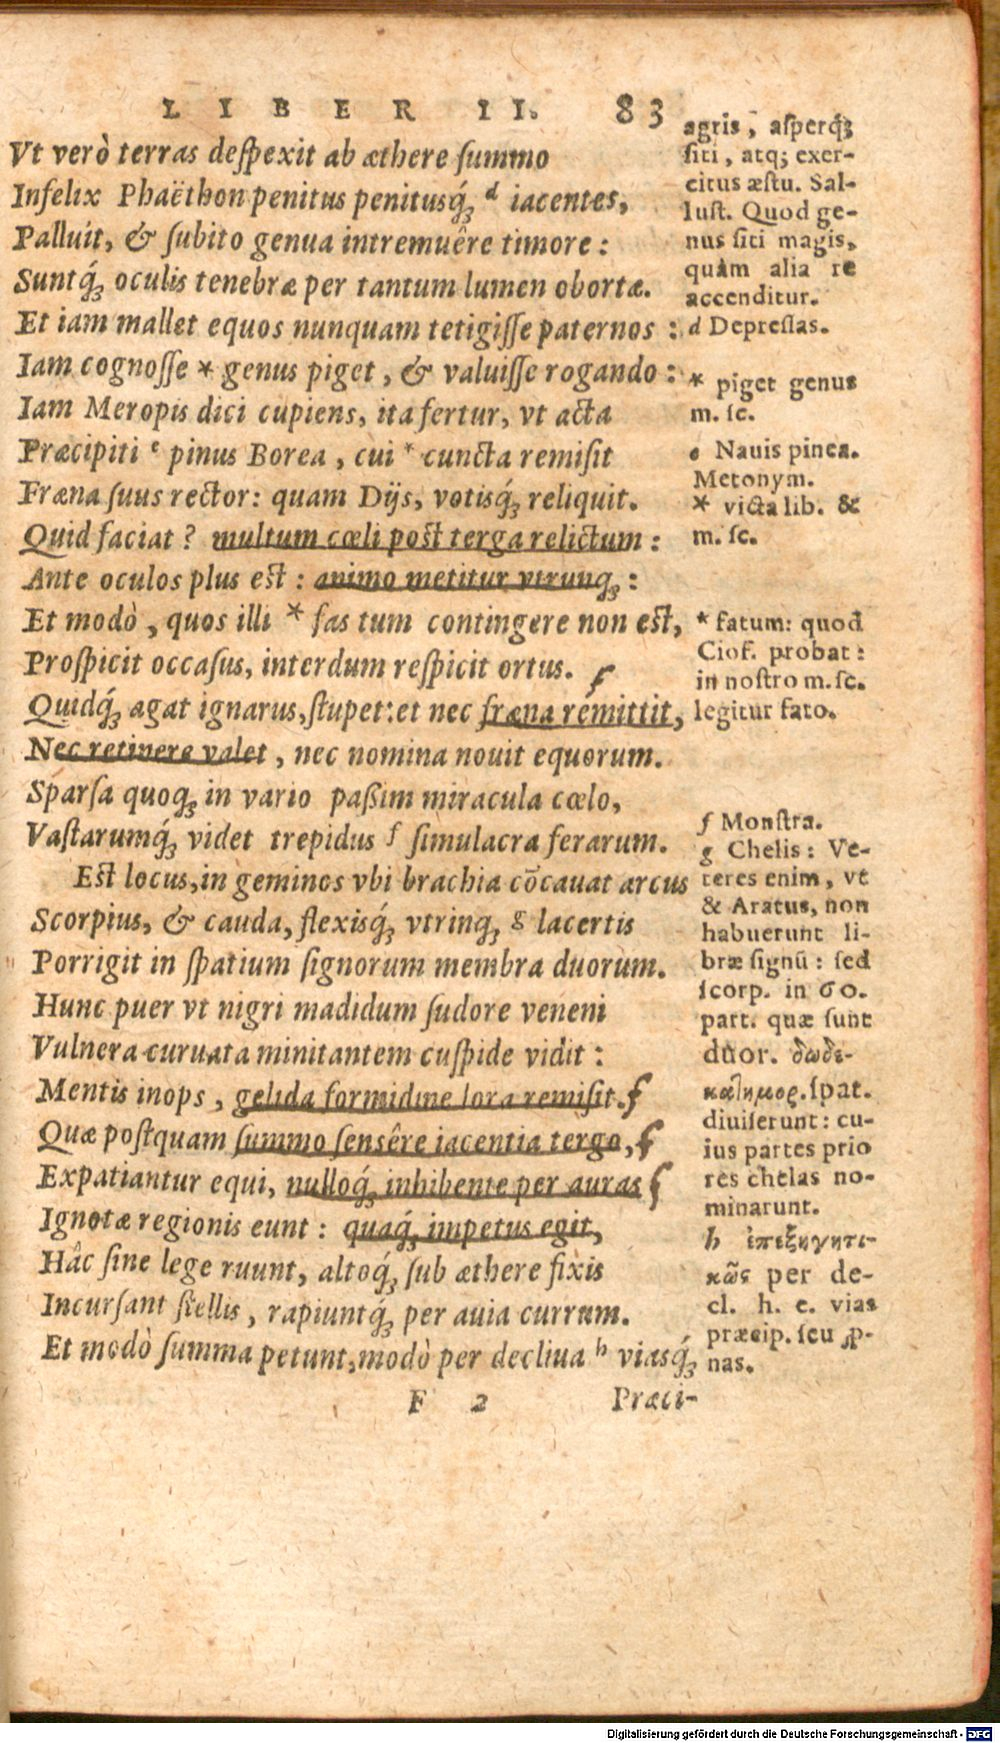 LIBER II. 83
Vt verò terras deſpexit ab æthere ſummo
Infelix Phaëthon penitus penitusq́; d iacentes,
Palluit, & ſubito genua intremuêre timore:
Suntq́; oculis tenebræ per tantum lumen obortæ.
Et iam mallet equos nunquam tetigiſſe paternos:
Iam cognoſſe * genus piget, & valuiſſe rogando:
Iam Meropis dici cupiens, ita fertur, vt acta
Præcipiti e pinus Borea, cui * cuncta remiſit
Fræna ſuus rector: quam Dijs, votisq́; reliquit.
Quid faciat? multum cœli poſt terga relictum:
Ante oculos plus eſt: animo metitur vtrunq;:
Et modò, quos illi * fas tum contingere non eſt,
Proſpicit occaſus, interdum reſpicit ortus.
Quidq́; agat ignarus, ſtupet: et nec fræna remittit,
Nec retinere valet, nec nomina nouit equorum.
Sparſa quoq; in vario paßim miracula cœlo,
Vaſtarumq́; videt trepidus f ſimulacra ferarum.
Eſt locus, in geminos vbi brachia cõcauat arcus
Scorpius, & cauda, flexisq́; vtrinq; g lacertis
Porrigit in ſpatium ſignorum membra duorum.
Hunc puer vt nigri madidum ſudore veneni
Vulnera curuata minitantem cuſpide vidit:
Mentis inops, gelida formidine lora remiſit.
Quæ poſtquam ſummo ſensêre iacentia tergo,
Expatiantur equi, nulloq́; inhibente per auras
Ignotæ regionis eunt: quaq́; impetus egit,
Hâc ſine lege ruunt, altoq́; ſub æthere fixis
Incurſant ſtellis, rapiuntq́; per auia currum.
Et modò ſumma petunt, modò per decliua h viasq́;
F 2 Præci-
agris, aſperq́;
ſiti, atq; exer-
citus æſtu. Sal-
luſt. Quod ge-
nus ſiti magis,
quàm alia re
accenditur.
d Depreſſas.
* piget genus
m. ſc.
e Nauis pinea.
Metonym.
* victa lib. &
m. ſc.
* fatum: quod
Ciof. probat:
in noſtro m. ſc.
legitur fato.
f Monſtra.
g Chelis: Ve-
teres enim, vt
& Aratus, non
habuerunt li-
bræ ſignũ: ſed
ſcorp. in 60.
part. quæ ſunt
duor. δωδε-
κατημορ. ſpat.
diuiſerunt: cu-
ius partes prio
res chelas no-
minarunt.
h ἐπεξηγητι-
κῶς per de-
cl. h. e. vias
præcip. ſeu ꝓ-
nas.
Digitalisierung gefördert durch die Deutsche Forschungsgemeinschaft - DFG